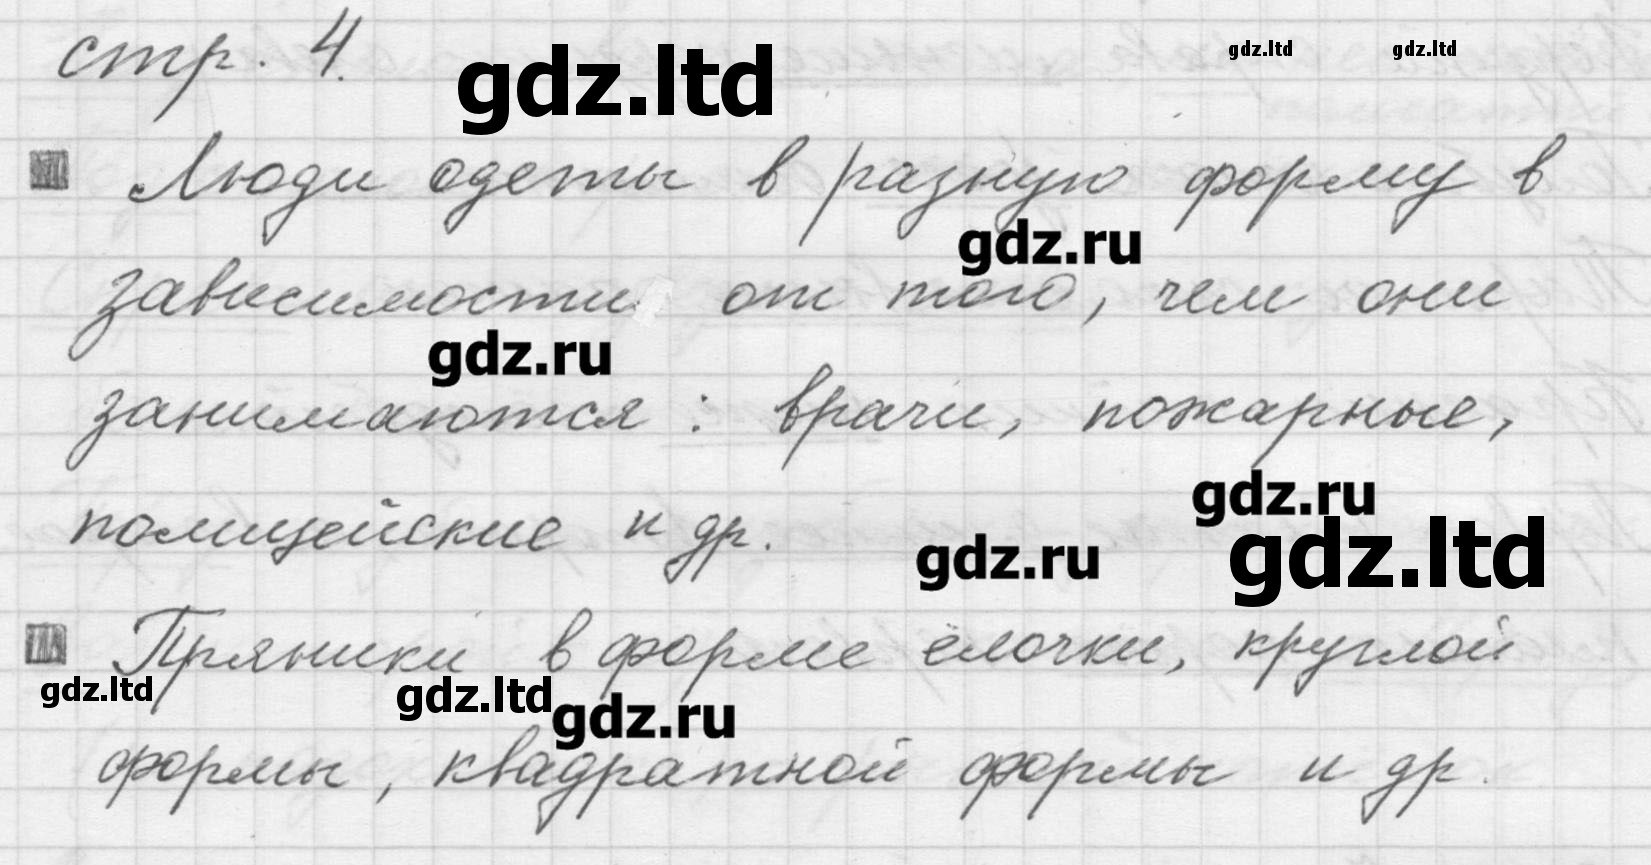 стр. 4.
gdz.ltd
gdz.ltd gdz.ltd
Люди одеты в разную форму в
gdz.ru
зависимости от того, чем они
gdz.ru
занимаются: врачи, пожарные,
gdz.ru
полицейские и др.
gdz.ru
gdz.ltd
Пряники в форме ёлочки, круглой
gdz.ltd gdz.ltd gdz.ru
формы, квадратной формы и др.